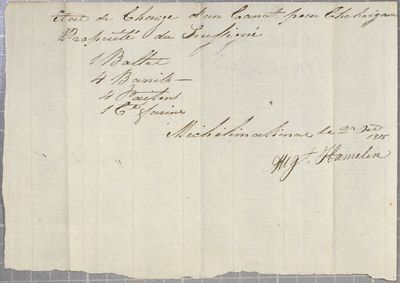 état de Charge d'un Canot pour Chabaigan
Propriété du Soussigné
1 Ballot
4 Barils
4
1 Ct farine
Michilimackinac le 2
1815
Mgt. Hamelin